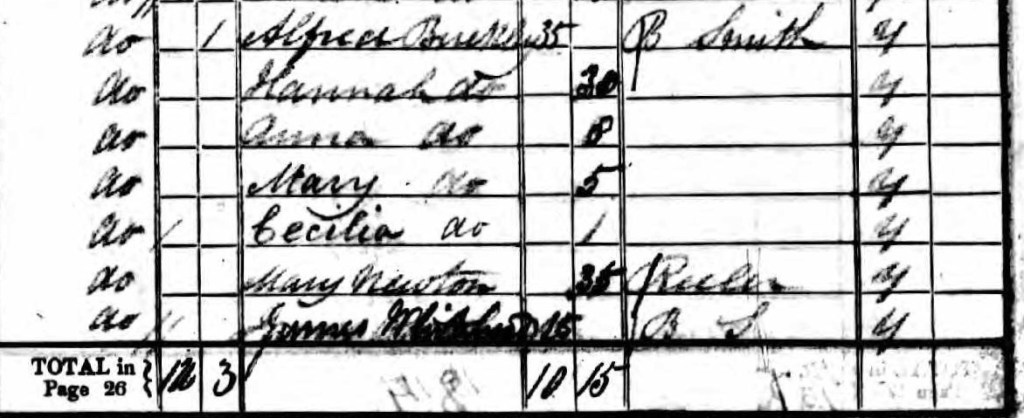 do 1 Alfred Buckley 35 B Smith y
do Hannah do 30 y
do Anna do 8 y
do Mary do 5 y
do 1 Cecilia do 1 y
do Mary Newton 35 Reeler y
do 11 James 15 B S y
TOTAL in Page 26 } 12 3 10 15